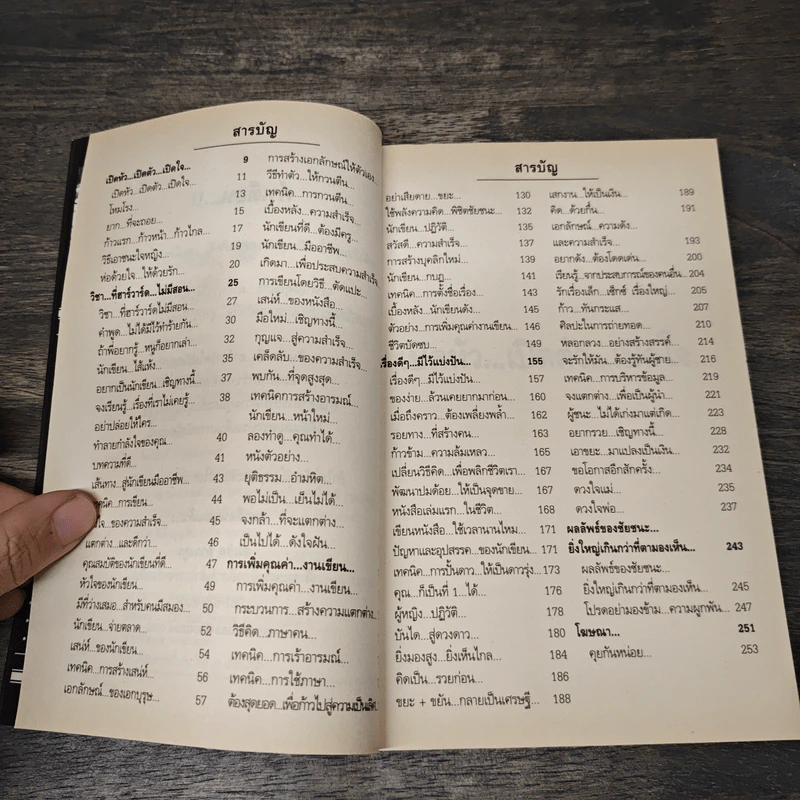 สารบัญ
เปิดหัว...เปิดตัว...เปิดใจ... 9
เปิดหัว...เปิดตัว...เปิดใจ... 11
โหมโรง... 13
ยาก...ที่จะถอย... 15
ก้าวแรก...ก้าวหน้า...ก้าวไกล... 17
วิธีเอาชนะใจหญิง... 19
ห่อด้วยใจ...ให้ด้วยรัก... 20
วิชา...ที่ฮาร์วาร์ด...ไม่มีสอน... 25
วิชา...ที่ฮาร์วาร์ดไม่มีสอน... 27
คำพูด...ไม่ได้มีไว้ทำร้ายกัน... 30
ถ้าพี่อยากรู้...หนูก็อยากเล่า... 32
นักเขียน...ไส้แห้ง... 35
อยากเป็นนักเขียน...เชิญทางนี้... 37
จงเรียนรู้...เรื่องที่เราไม่เคยรู้... 38
อย่าปล่อยให้ใคร...
ทำลายกำลังใจของคุณ... 40
บทความที่ดี... 41
เส้นทาง...สู่นักเขียนมืออาชีพ... 43
เทคนิค...การเขียน... 44
...ของความสำเร็จ... 45
แตกต่าง...และดีกว่า... 46
คุณสมบัติของนักเขียนที่ดี... 47
หัวใจของนักเขียน... 49
มีที่ว่างเสมอ...สำหรับคนมีสมอง... 50
นักเขียน...จ่ายตลาด... 52
เสน่ห์...ของนักเขียน... 54
เทคนิค...การสร้างเสน่ห์... 56
เอกลักษณ์...ของเอกบุรุษ... 57
การสร้างเอกลักษณ์ให้ตัวเอง...
วิธีทำตัว...ให้กวนตีน...
เทคนิค...การกวนตีน...
เบื้องหลัง...ความสำเร็จ...
นักเขียนที่ดี...ต้องมีครู...
นักเขียน...มืออาชีพ...
เกิดมา...เพื่อประสบความสำเร็จ
การเขียนโดยวิธี...ตัดแปะ...
เสน่ห์...ของหนังสือ...
มือใหม่...เชิญทางนี้...
กุญแจ...สู่ความสำเร็จ...
เคล็ดลับ...ของความสำเร็จ...
พบกัน...ที่จุดสูงสุด...
เทคนิคการสร้างอารมณ์...
นักเขียน...หน้าใหม่...
ลองทำดู...คุณทำได้...
หนังตัวอย่าง...
ยุติธรรม...อำมหิต...
พอไม่เป็น...เย็นไม่ได้...
จงกล้า...ที่จะแตกต่าง...
เป็นไปได้...ดังใจฝัน...
การเพิ่มคุณค่า...งานเขียน...
การเพิ่มคุณค่า...งานเขียน...
กระบวนการ...สร้างความแตกต่าง...
วิธีคิด...ภาษาคน...
เทคนิค...การเร้าอารมณ์...
เทคนิค...การใช้ภาษา...
ต้องสุดยอด...เพื่อก้าวไปสู่ความเป็นเลิศ
สารบัญ
อย่าเสียดาย...ขยะ... 130
ใช้พลังความคิด...พิชิตชัยชนะ... 132
นักเขียน...ปฏิวัติ... 135
สวัสดี...ความสำเร็จ... 137
การสร้างบุคลิกใหม่... 139
นักเขียน...กบฏ... 141
เทคนิค...การตั้งชื่อเรื่อง... 143
เบื้องหลัง...นักเขียนดัง... 145
ตัวอย่าง...การเพิ่มคุณค่างานเขียน... 146
ชีวิตบัดซบ... 149
เรื่องดีๆ...มีไว้แบ่งปัน... 155
เรื่องดีๆ...มีไว้แบ่งปัน... 157
ของง่าย...ล้วนเคยยากมาก่อน... 160
เมื่อถึงคราว...ต้องเพลี่ยงพล้ำ... 162
รอยทาง...ที่สร้างคน... 163
ก้าวข้าม...ความล้มเหลว... 165
เปลี่ยนวิธีคิด...เพื่อพลิกชีวิตเรา... 167
พัฒนาปมด้อย...ให้เป็นจุดขาย... 167
หนังสือเล่มแรก...ในชีวิต... 168
เขียนหนังสือ...ใช้เวลานานไหม... 171
ปัญหาและอุปสรรค...ของนักเขียน... 171
เทคนิค...การปั้นดาว...ให้เป็นดาวรุ่ง... 173
คุณ...ก็เป็นที่ 1...ได้... 176
ผู้หญิง...ปฏิวัติ... 178
บันได...สู่ดวงดาว... 180
ยิ่งมองสูง...ยิ่งเห็นไกล... 184
คิดเป็น...รวยก่อน... 186
ขยะ + ขยัน...กลายเป็นเศรษฐี... 188
เสกงาน...ให้เป็นเงิน... 189
คิด...ด้วยกึ๋น... 191
เอกลักษณ์...ความดัง...
และความสำเร็จ... 193
อยากดัง...ต้องโดดเด่น... 200
เรียนรู้...จากประสบการณ์ของคนอื่น... 204
รักเรื่องเล็ก...เซ็กซ์ เรื่องใหญ่... 205
ก้าว...ทันกระแส... 207
ศิลปะในการถ่ายทอด... 210
หลอกลวง...อย่างสร้างสรรค์... 214
จะรักให้มัน...ต้องรู้ทันผู้ชาย... 216
เทคนิค...การบริหารข้อมูล... 219
จงแตกต่าง...เพื่อเป็นผู้นำ... 221
ผู้ชนะ...ไม่ได้เก่งมาแต่เกิด... 223
อยากรวย...เชิญทางนี้... 228
เอาขยะ...มาแปลงเป็นเงิน... 232
ขอโอกาสอีกสักครั้ง... 234
ดวงใจแม่... 235
ดวงใจพ่อ... 237
ผลลัพธ์ของชัยชนะ...
ยิ่งใหญ่เกินกว่าที่ตามองเห็น... 243
ผลลัพธ์ของชัยชนะ...
ยิ่งใหญ่เกินกว่าที่ตามองเห็น... 245
โปรดอย่ามองข้าม...ความผูกพัน... 247
โฆษณา... 251
คุยกันหน่อย... 253